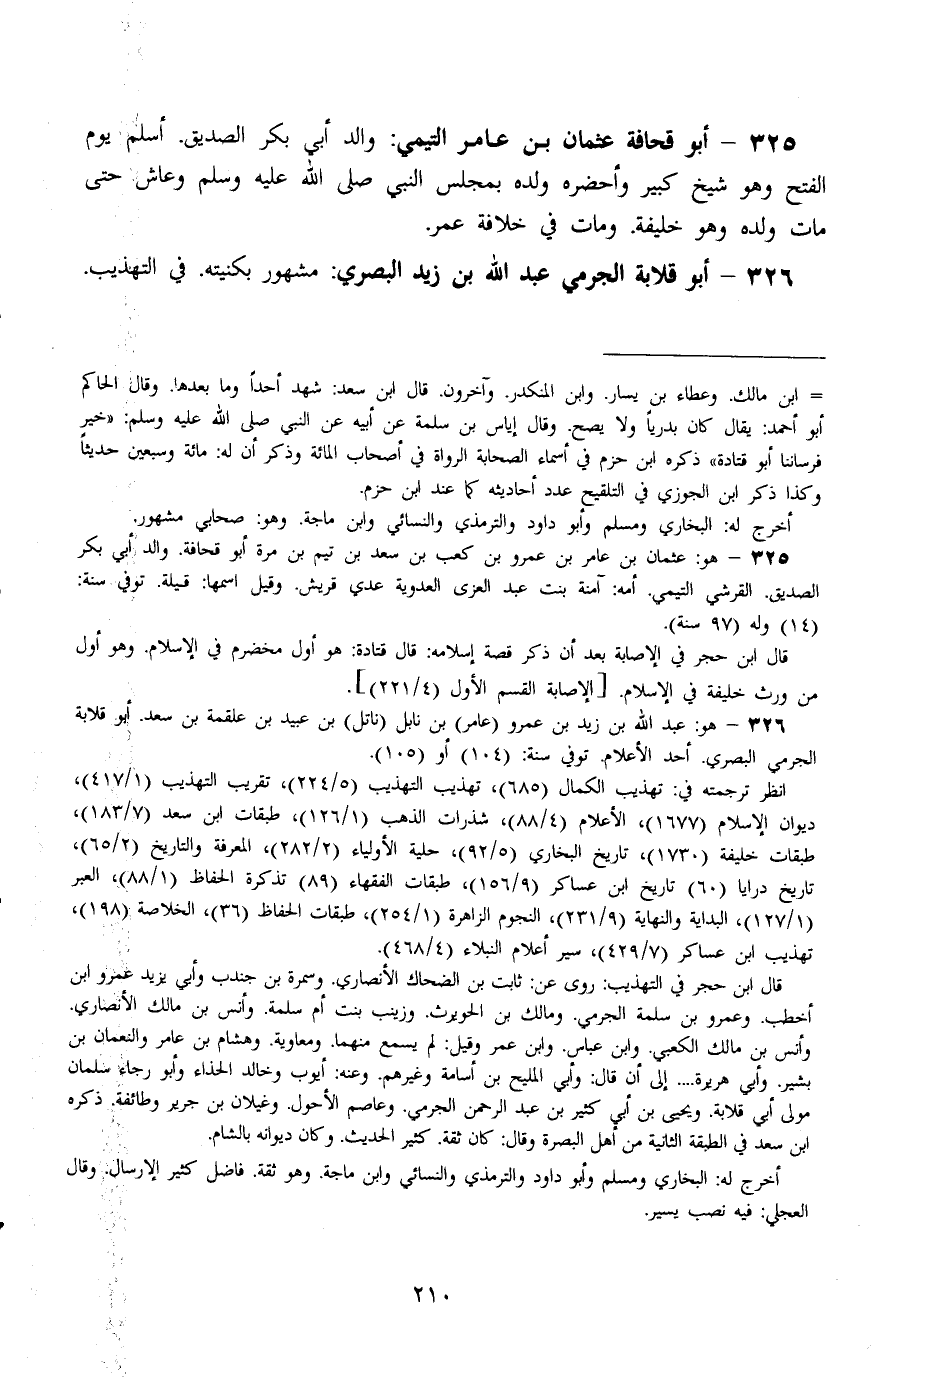 ٣٢٥ – أبو قحافة عثمان بن عامر التيمي: والد أبي بكر الصديق. أسلم يوم
الفتح وهو شيخ كبير وأحضره ولده بمجلس النبي صلى الله عليه وسلم وعاش حتى
مات ولده وهو خليفة. ومات في خلافة عمر.
٣٢٦ – أبو قلابة الجرمي عبد الله بن زيد البصري: مشهور بكنيته. في التهذيب.
= ابن مالك. وعطاء بن يسار. وابن المنكدر. وآخرون. قال ابن سعد: شهد أحداً وما بعدها. وقال الحاكم
أبو أحمد: يقال كان بدرياً ولا يصح. وقال إياس بن سلمة عن أبيه عن النبي صلى الله عليه وسلم: «خير
فرساننا أبو قتادة» ذكره ابن حزم في أسماء الصحابة الرواة في أصحاب المائة وذكر أن له: مائة وسبعين حديثاً
وكذا ذكر ابن الجوزي في التلقيح عدد أحاديثه كما عند ابن حزم.
أخرج له: البخاري ومسلم وأبو داود والترمذي والنسائي وابن ماجة. وهو: صحابي مشهور.
٣٢٥ – هو: عثمان بن عامر بن عمرو بن كعب بن سعد بن تيم بن مرة أبو قحافة. والد أبي بكر
الصديق. القرشي التيمي. أمه: آمنة بنت عبد العزى العدوية عدي قريش. وقيل اسمها: قيلة. توفي سنة:
(١٤) وله (٩٧ سنة).
قال ابن حجر في الإصابة بعد أن ذكر قصة إسلامه: قال قتادة: هو أول مخضرم في الإسلام. وهو أول
من ورث خليفة في الإسلام. [الإصابة القسم الأول (٢٢١/٤)].
٣٢٦ – هو: عبد الله بن زيد بن عمرو (عامر) بن نابل (ناتل) بن عبيد بن علقمة بن سعد. أبو قلابة
الجرمي البصري. أحد الأعلام. توفي سنة: (١٠٤) أو (١٠٥).
انظر ترجمته في: تهذيب الكمال (٦٨٥)، تهذيب التهذيب (٢٢٤/٥)، تقريب التهذيب (٤١٧/١)،
ديوان الإسلام (١٦٧٧)، الأعلام (٨٨/٤)، شذرات الذهب (١٢٦/١)، طبقات ابن سعد (١٨٣/٧)،
طبقات خليفة (١٧٣٠)، تاريخ البخاري (٩٢/٥)، حلية الأولياء (٢٨٢/٢)، المعرفة والتاريخ (٦٥/٢)،
تاريخ درايا (٦٠) تاريخ ابن عساكر (١٥٦/٩)، طبقات الفقهاء (٨٩) تذكرة الحفاظ (٨٨/١)، العبر
(١٢٧/١)، البداية والنهاية (٢٣١/٩)، النجوم الزاهرة (٢٥٤/١)، طبقات الحفاظ (٣٦)، الخلاصة (١٩٨)،
تهذيب ابن عساكر (٤٢٩/٧)، سير أعلام النبلاء (٤٦٨/٤).
قال ابن حجر في التهذيب: روى عن: ثابت بن الضحاك الأنصاري. وسمرة بن جندب وأبي يزيد عمرو ابن
أخطب. وعمرو بن سلمة الجرمي. ومالك بن الحويرث. وزينب بنت أم سلمة. وأنس بن مالك الأنصاري.
وأنس بن مالك الكعبي. وابن عباس. وابن عمر وقيل: لم يسمع منهما. ومعاوية. وهشام بن عامر والنعمان بن
بشير. وأبي هريرة.... إلى أن قال: وأبي المليح بن أسامة وغيرهم. وعنه: أيوب وخالد الحذاء وأبو رجاء سلمان
مولى أبي قلابة. ويحيى بن أبي كثير بن عبد الرحمن الجرمي. وعاصم الأحول. وغيلان بن جرير وطائفة. ذكره
ابن سعد في الطبقة الثانية من أهل البصرة وقال: كان ثقة. كثير الحديث. وكان ديوانه بالشام.
أخرج له: البخاري ومسلم وأبو داود والترمذي والنسائي وابن ماجة. وهو ثقة. فاضل كثير الإرسال. وقال
العجلي: فيه نصب يسير.
٢١٠